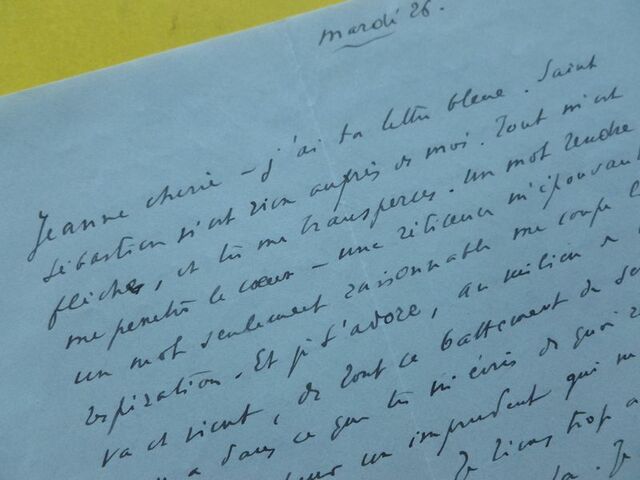 mardi 26.
Jeanne chérie – j'ai ta lettre bleue. Saint
Sébastien n'est rien auprès de moi. Tout m'est
flèches, et tu me transperces. Un mot tendre
me pénètre le cœur – une réticence m'épouvant
un mot seulement raisonnable me coupe l
respiration. Et je t'adore, au milieu de
va et vient, de tout ce battement de
a dans ce que tu m'écris de quoi
un imprudent qui m
Je tiens trop a
Je